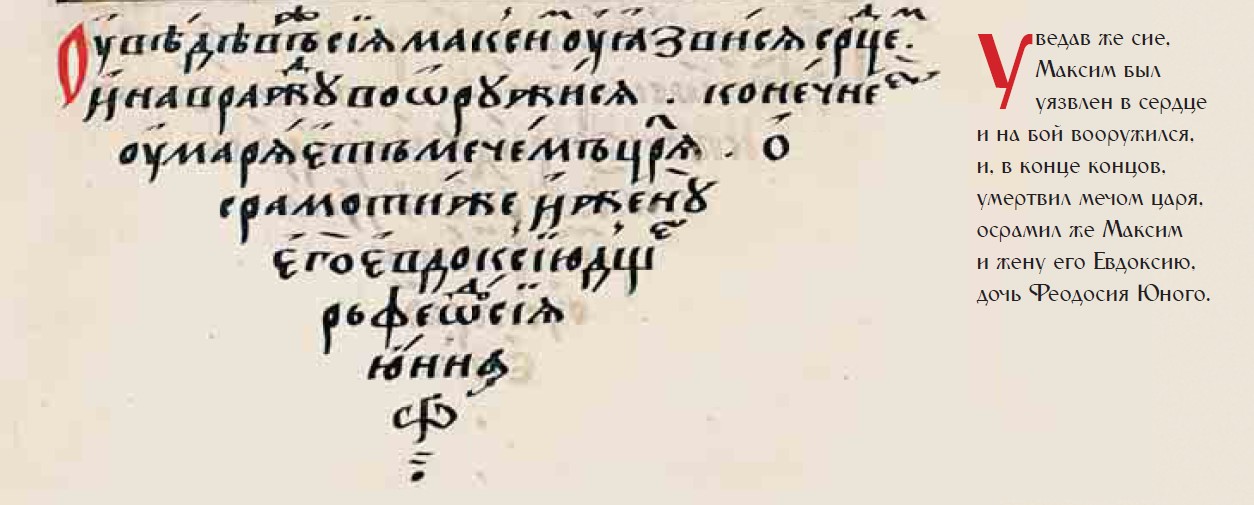 Оувѣдѣвъ же сїѧ маѯим оуꙗзвисѧ срдцемъ.
и҆ на пра́вдꙋ воѡрꙋжисѧ. коне́чнеє
оу҆марѧ́етъ мече́мъ цр҃ѧ. ѻ
срамоти́ же и҆ женꙋ̀
є҆го̀ є҆вдоксі́ю дще
рь феѡдѡ́сїѧ
ю҆ннаго
Уведав же сие,
Максим был
уязвлен в сердце
и на бой вооружился,
и, в конце концов,
умертвил мечом царя,
осрамил же Максим
и жену его Евдоксию,
дочь Феодосия Юного.